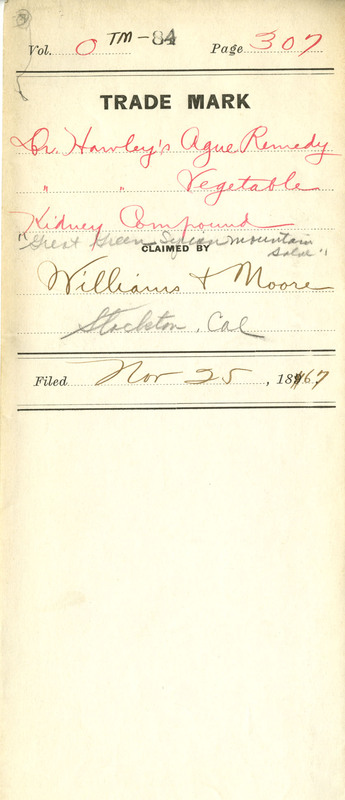 Vol. 0 TM-84 Page 307
TRADE MARK
Dr. Hawley's Ague Remedy
" " Vegetable
Kidney Compound
"Great Green Syrian Mountain Salve"
CLAIMED BY
Williams & Moore
Stockton, Cal
Filed Nov 25, 1867